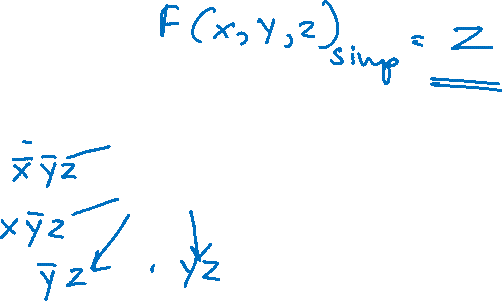 F(x, y, z)simp = z
x̄ ȳ z
x ȳ z
ȳ z . yz